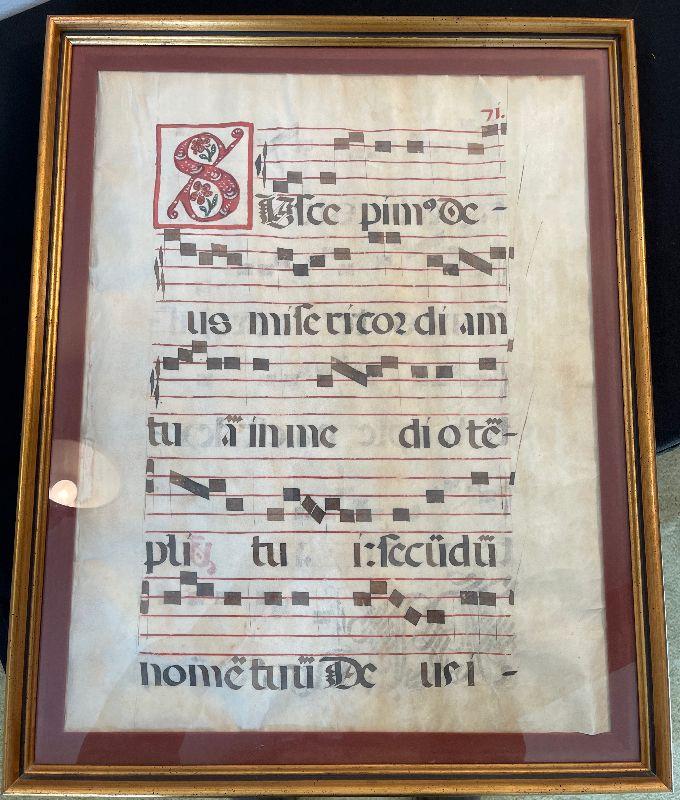 71.
SUsce pimꝰ De-
us miſe ricor di am
tu ã in me di o tẽ-
pli tu i: ſecũdũ
nomẽ tuũ De us i-